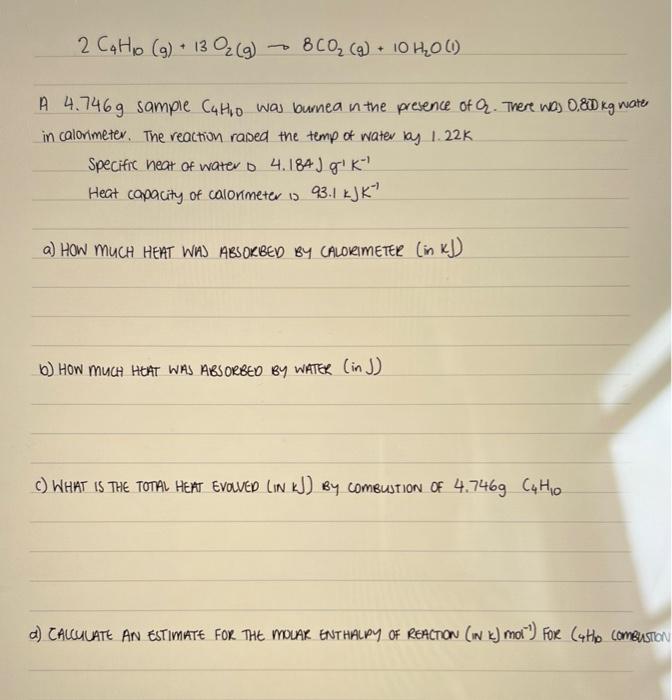 2 C4H10 (g) + 13 O2 (g) → 8 CO2 (g) + 10 H2O (l)
A 4.746g sample C4H10 was burned in the presence of O2. There was 0.800 kg water
in calorimeter. The reaction raised the temp of water by 1.22K
Specific heat of water is 4.184 J g-1 K-1
Heat capacity of calorimeter is 93.1 kJ K-1
a) HOW MUCH HEAT WAS ABSORBED BY CALORIMETER (in kJ)
b) HOW MUCH HEAT WAS ABSORBED BY WATER (in J)
c) WHAT IS THE TOTAL HEAT EVOLVED (IN kJ) BY COMBUSTION OF 4.746g C4H10
d) CALCULATE AN ESTIMATE FOR THE MOLAR ENTHALPY OF REACTION (IN kJ mol-1) FOR C4H10 COMBUSTION